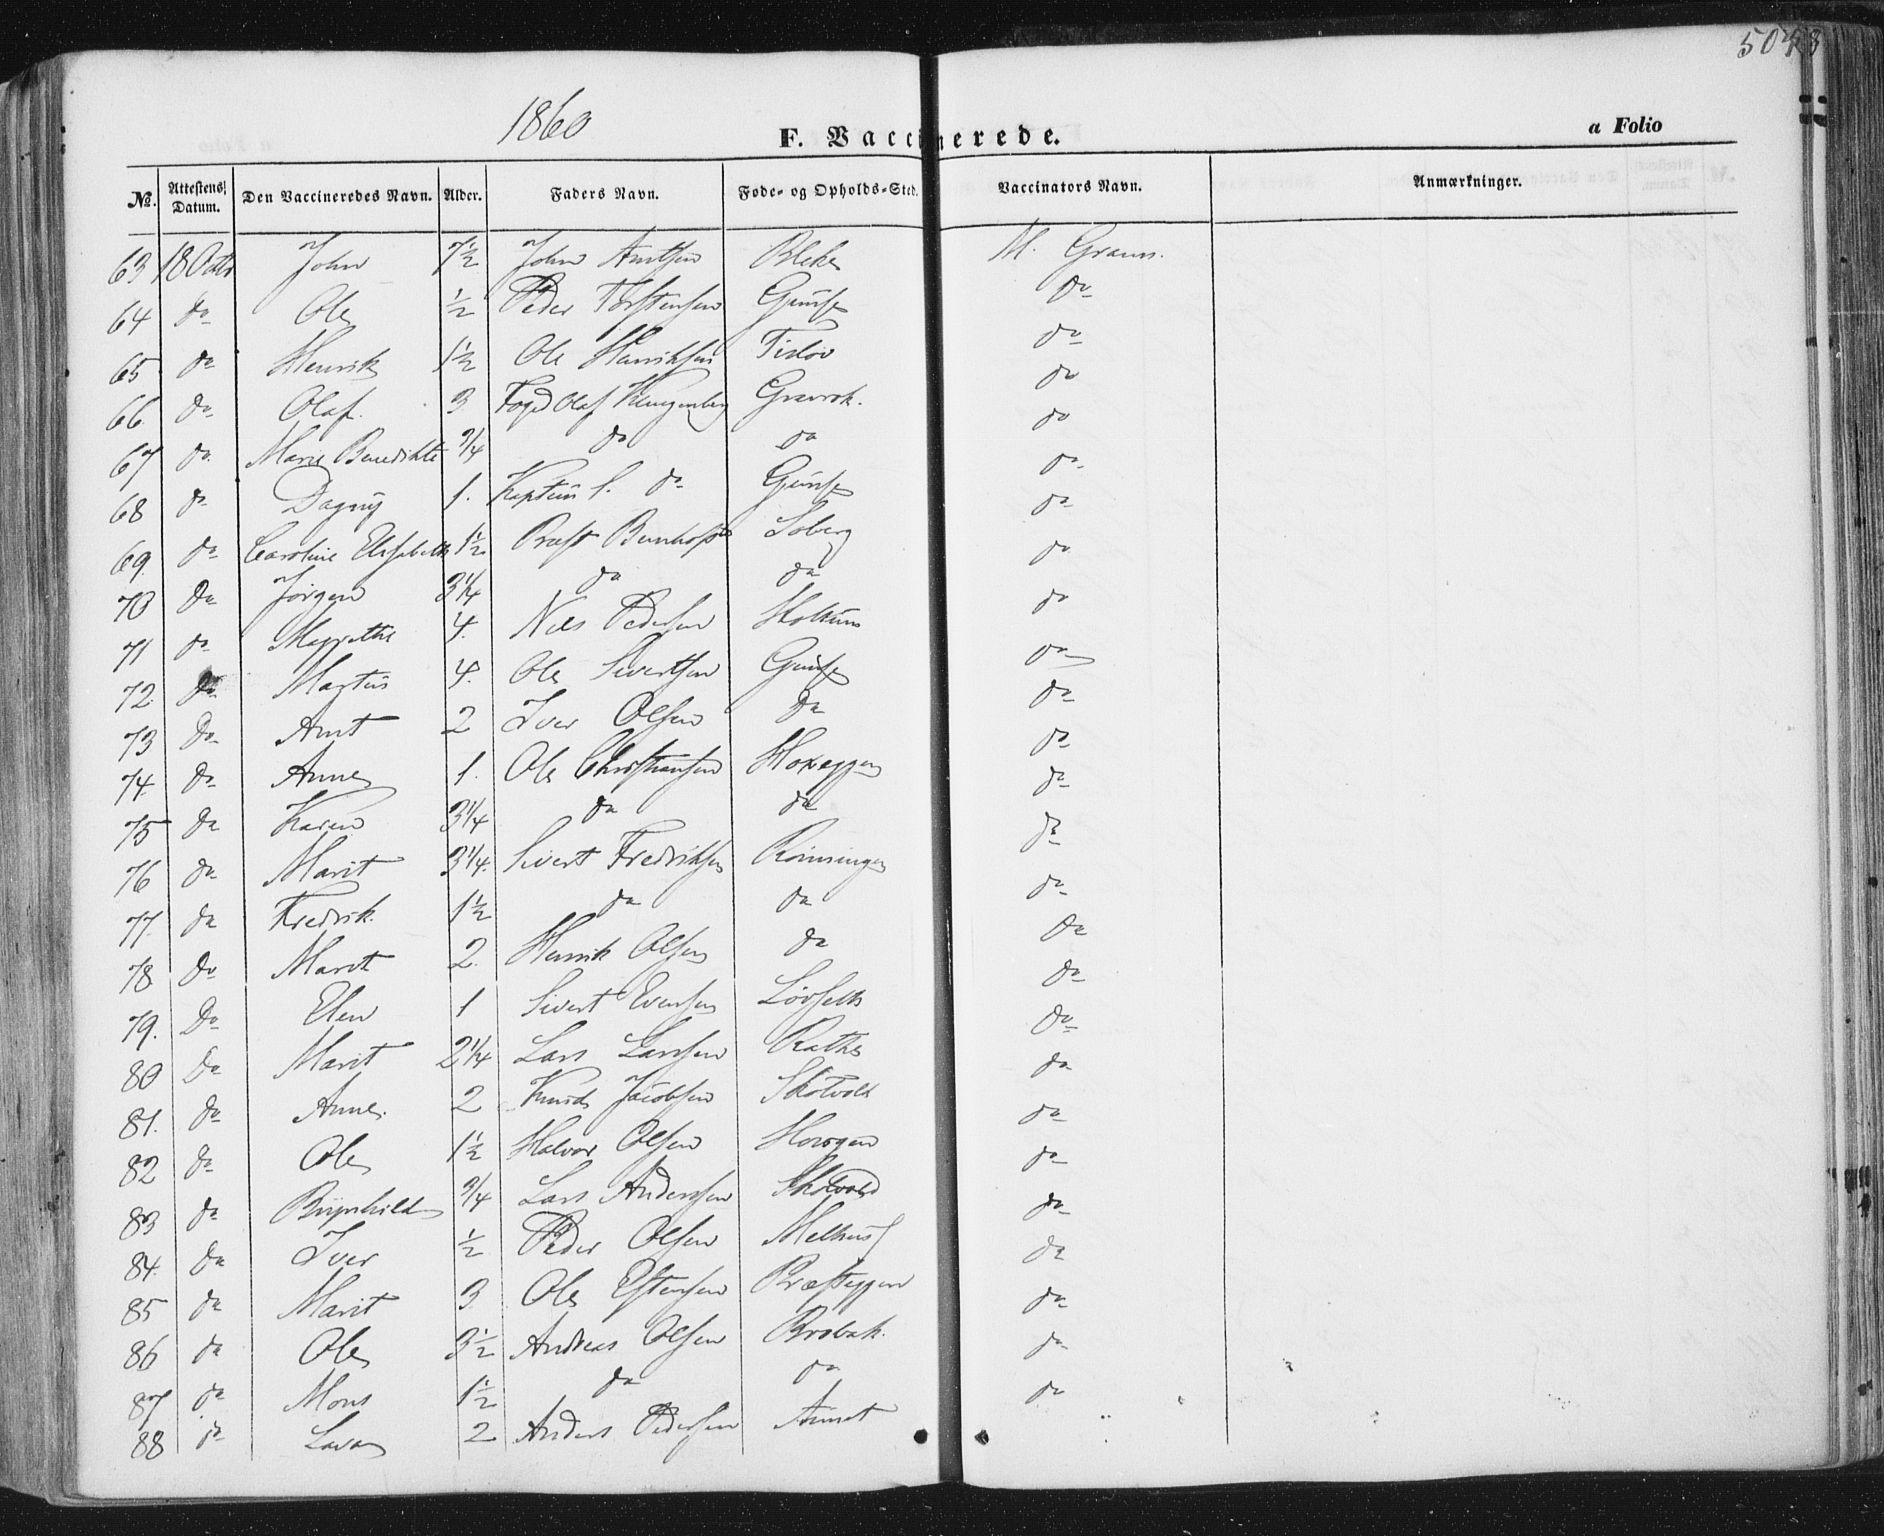 1860
F. Vaccinerede.
a Folio
No. Attestens Datum. Den Vaccineredes Navn. Alder. Faders Navn. Føde- og Opholds-Sted. Vaccinators Navn. Anmærkninger.
63 18 Octbr John 7½ John Arntsen Bleke M. Graun.
64 do Ole ½ Peder Torstensen do
65 do Henrik 1½ Ole Henriksen do
66 do Olaf. 3 Foged Olaf Klingenberg Gravrok. do
67 do Marie Benedikte 3/4 do do do
68 do Dagny 1. Kaptein do do
69 do Caroline Elisabeth 1½ Præst Soberg do
70 do Jörgen 3¼ do do do
71 do Margrethe 4. Nils Pedersen do
72. do Martin 4. Ole Sivertsen do
73 do Arnt 2 Iver Olsen do do
74. do Anne 1. Ole Christiansen do
75 do Karen 3¼ do do do
76 do Marit 3¼. Sivert Fredriksen do
77. do Fredrik 1½ do do do
78 do Marit 2. Henrik Olsen do do
79. Do Elen 1 Sivert Evensen Lövseth do
80 Do Marit 2¼ Lars Larsen Rathe do
81. do Anne. 2 Knud Jacobsen Skotvold do
82 do Ole 1½ Halvor Olsen do
83 do Brynhild 3/4 Lars Anderssen Skotvold do
84. do Iver ½ Peder Olsen Melhus do
85 do Marit 3. Ole Estensen Præsteggen do
86 do Ole 3½ Andreas Olsen Brobak. do
87 do Mons 1½ do do do
88 do 2 Anders Pedersen do